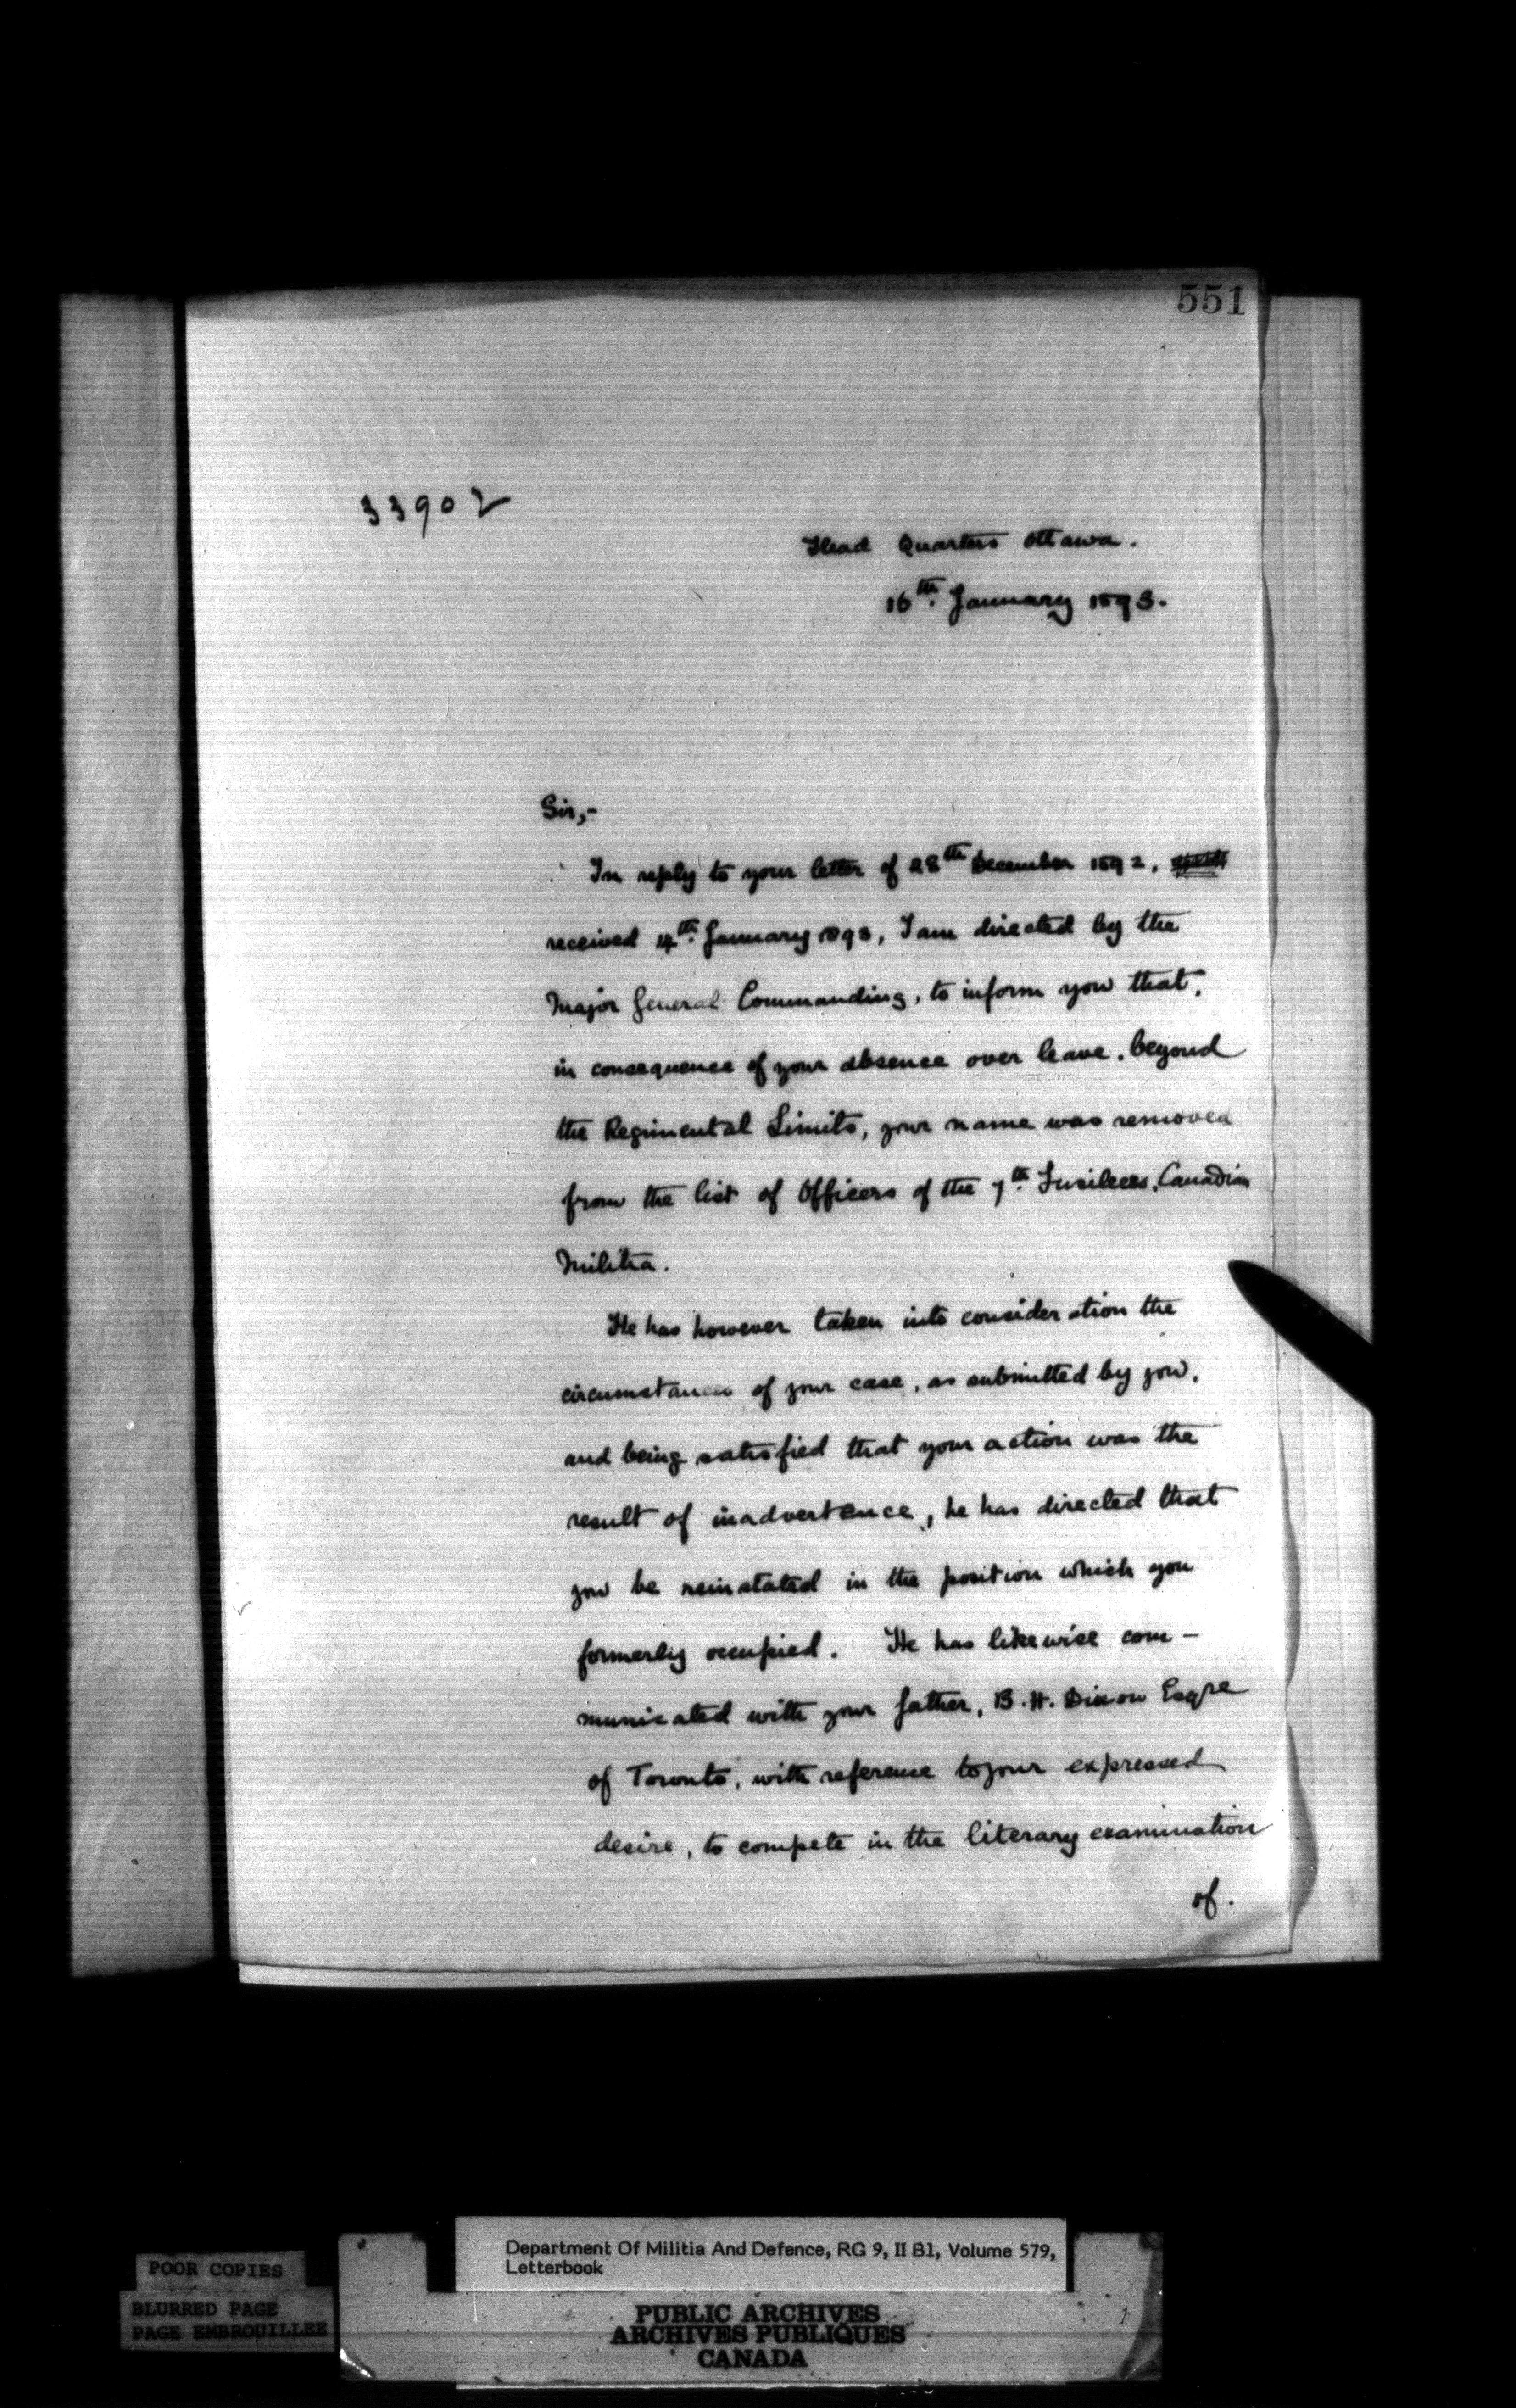 551
33902
Head Quarters Ottawa.
16th January 1893.
Sir,-
In reply to your letter of 28th December 1892,
received 14th January 1893, I am directed by the
Major General Commanding, to inform you that,
in consequence of your absence over leave, beyond
the Regimental Limits, your name was removed
from the list of Officers of the 7th Fusileers, Canadian
Militia.
He has however taken into consideration the
circumstances of your case, as submitted by you,
and being satisfied that your action was the
result of inadvertence, he has directed that
you be reinstated in the position which you
formerly occupied. He has likewise com-
municated with your father, B. H. Dixon Esqre
of Toronto, with reference to your expressed
desire, to compete in the literary examination
of.
Department Of Militia And Defence, RG 9, II B1, Volume 579,
Letterbook
POOR COPIES
BLURRED PAGE
PAGE EMBROUILLEE
PUBLIC ARCHIVES
ARCHIVES PUBLIQUES
CANADA